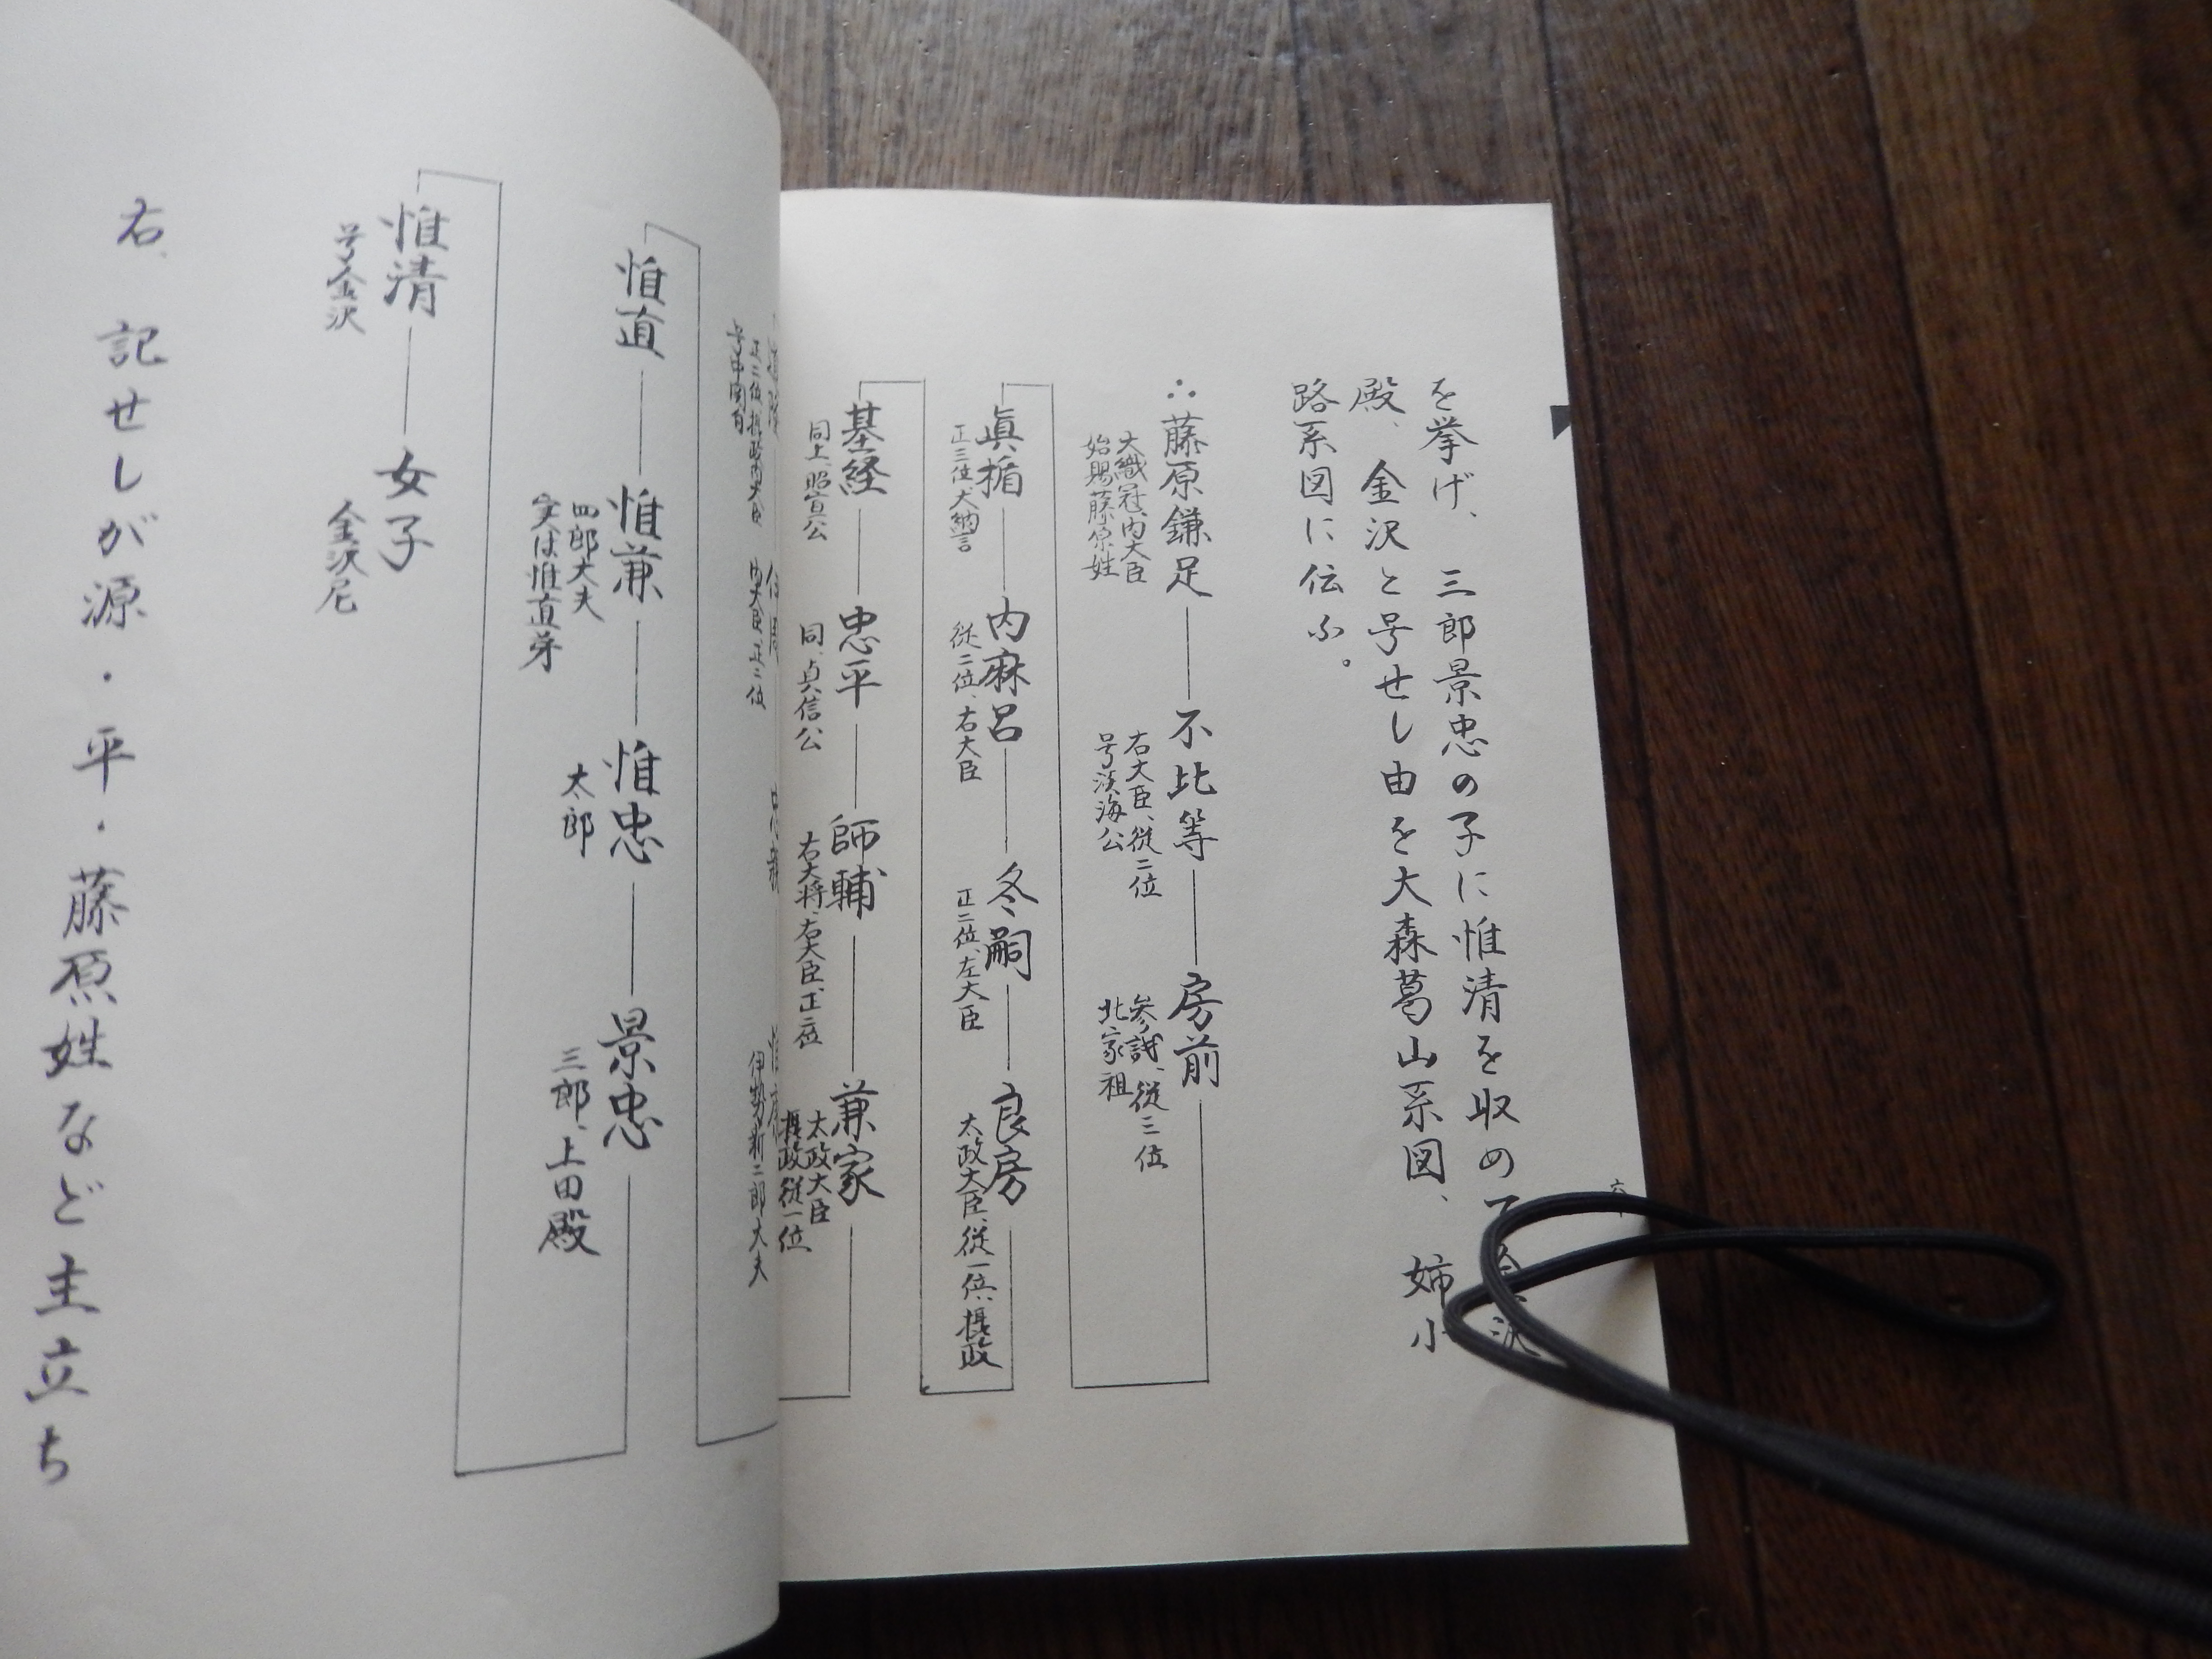 を挙げ、三郎景忠の子に惟清を収めて
殿、金沢と号せし由を大森葛山系図、姉小
路系図に伝ふ。
∴藤原鎌足
大織冠、内大臣
始賜藤原姓
不比等
右大臣、従二位
号淡海公
房前
参議、従三位
北家祖
眞楯
正三位、大納言
内麻呂
従二位、右大臣
冬嗣
正二位、左大臣
良房
太政大臣、従一位、摂政
基経
同上、昭宣公
忠平
同、貞信公
師輔
右大将、右大臣、正二位
兼家
太政大臣
摂政、従一位
正二位、摂政内大臣
号中関白
内大臣、正二位
伊勢新二郎大夫
惟直
惟兼
四郎大夫
実は惟直弟
惟忠
太郎
景忠
三郎、上田殿
惟清
号金沢
女子
金沢尼
右、記せしが源・平・藤原姓など主立ち
六